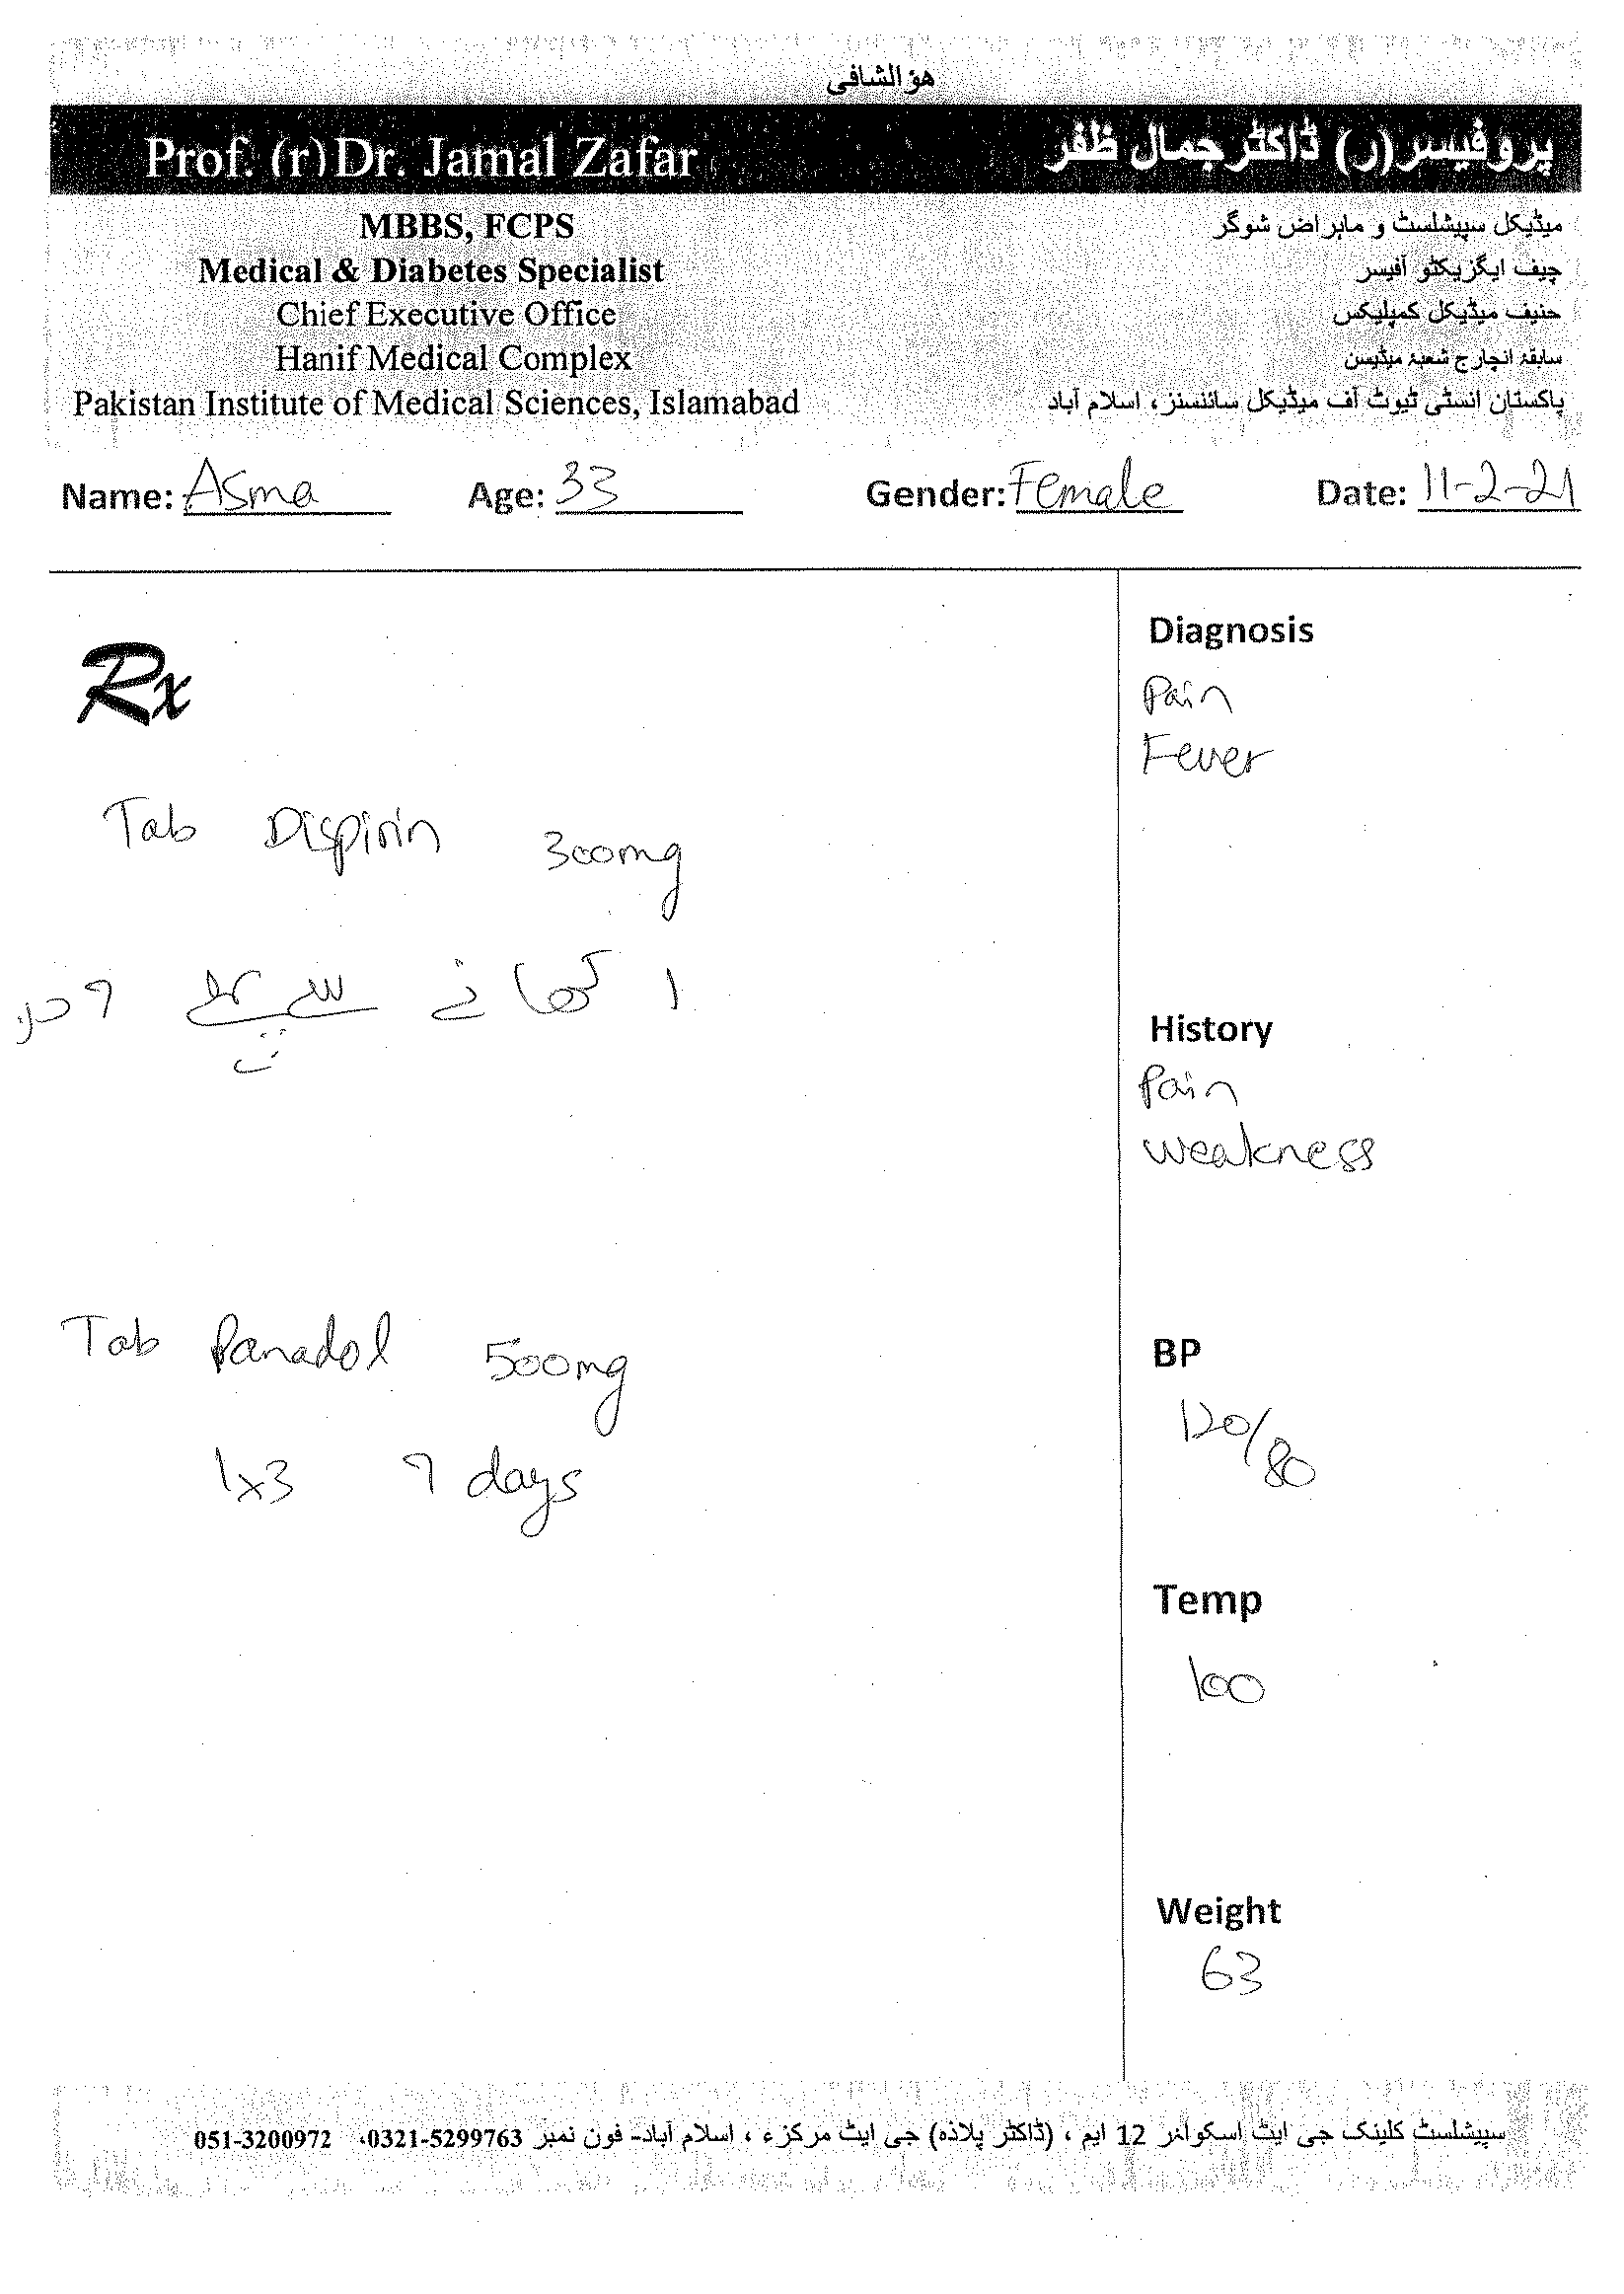 ھوالشافی
Prof. (r) Dr. Jamal Zafar
پروفیسر(ر) ڈاکٹر جمال ظفر
MBBS, FCPS
Medical & Diabetes Specialist
Chief Executive Office
Hanif Medical Complex
Pakistan Institute of Medical Sciences, Islamabad
میڈیکل سپیشلسٹ و ماہر اض شوگر
چیف ایگزیکٹو آفیسر
حنیف میڈیکل کمپلیکس
سابقۂ انچارج شعبۂ میڈیسن
پاکستان انسٹی ٹیوٹ آف میڈیکل سائنسنز، اسلام آباد
Name: Asma Age: 33 Gender: Female Date: 11-2-21
Rx
Tab Dispirin 300mg
1 کھانے سے پہلے 7 دن
Tab Panadol 500mg
1x3 7 days
Diagnosis
Pain
Fever
History
Pain
weakness
BP
120/80
Temp
100
Weight
63
سپیشلسٹ کلینک جی ایٹ اسکوائر 12 ایم ، (ڈاکٹر پلاذہ) جی ایٹ مرکزء ، اسلام آباد- فون نمبر 0321-5299763، 051-3200972